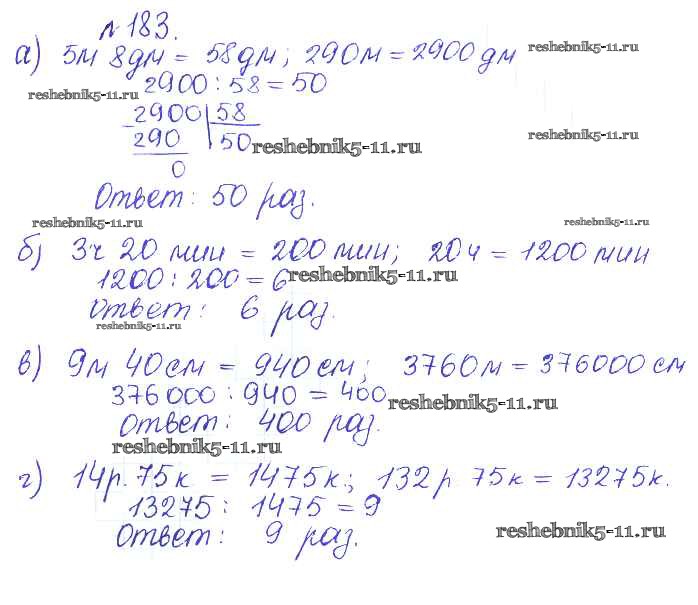 №183.
а) 5м 8дм = 58дм; 290м = 2900 дм
reshebnik5-11.ru
2900 : 58 = 50
reshebnik5-11.ru
2900 | 58
290 | 50
reshebnik5-11.ru
reshebnik5-11.ru
0
Ответ: 50 раз.
reshebnik5-11.ru
reshebnik5-11.ru
б) 3ч 20 мин = 200 мин; 20ч = 1200 мин
1200 : 200 = 6
reshebnik5-11.ru
Ответ: 6 раз.
reshebnik5-11.ru
в) 9м 40см = 940 см; 3760м = 376000 см
376000 : 940 = 400
reshebnik5-11.ru
Ответ: 400 раз.
reshebnik5-11.ru
г) 14р. 75к = 1475к.; 132р 75к = 13275к.
13275 : 1475 = 9
Ответ: 9 раз.
reshebnik5-11.ru